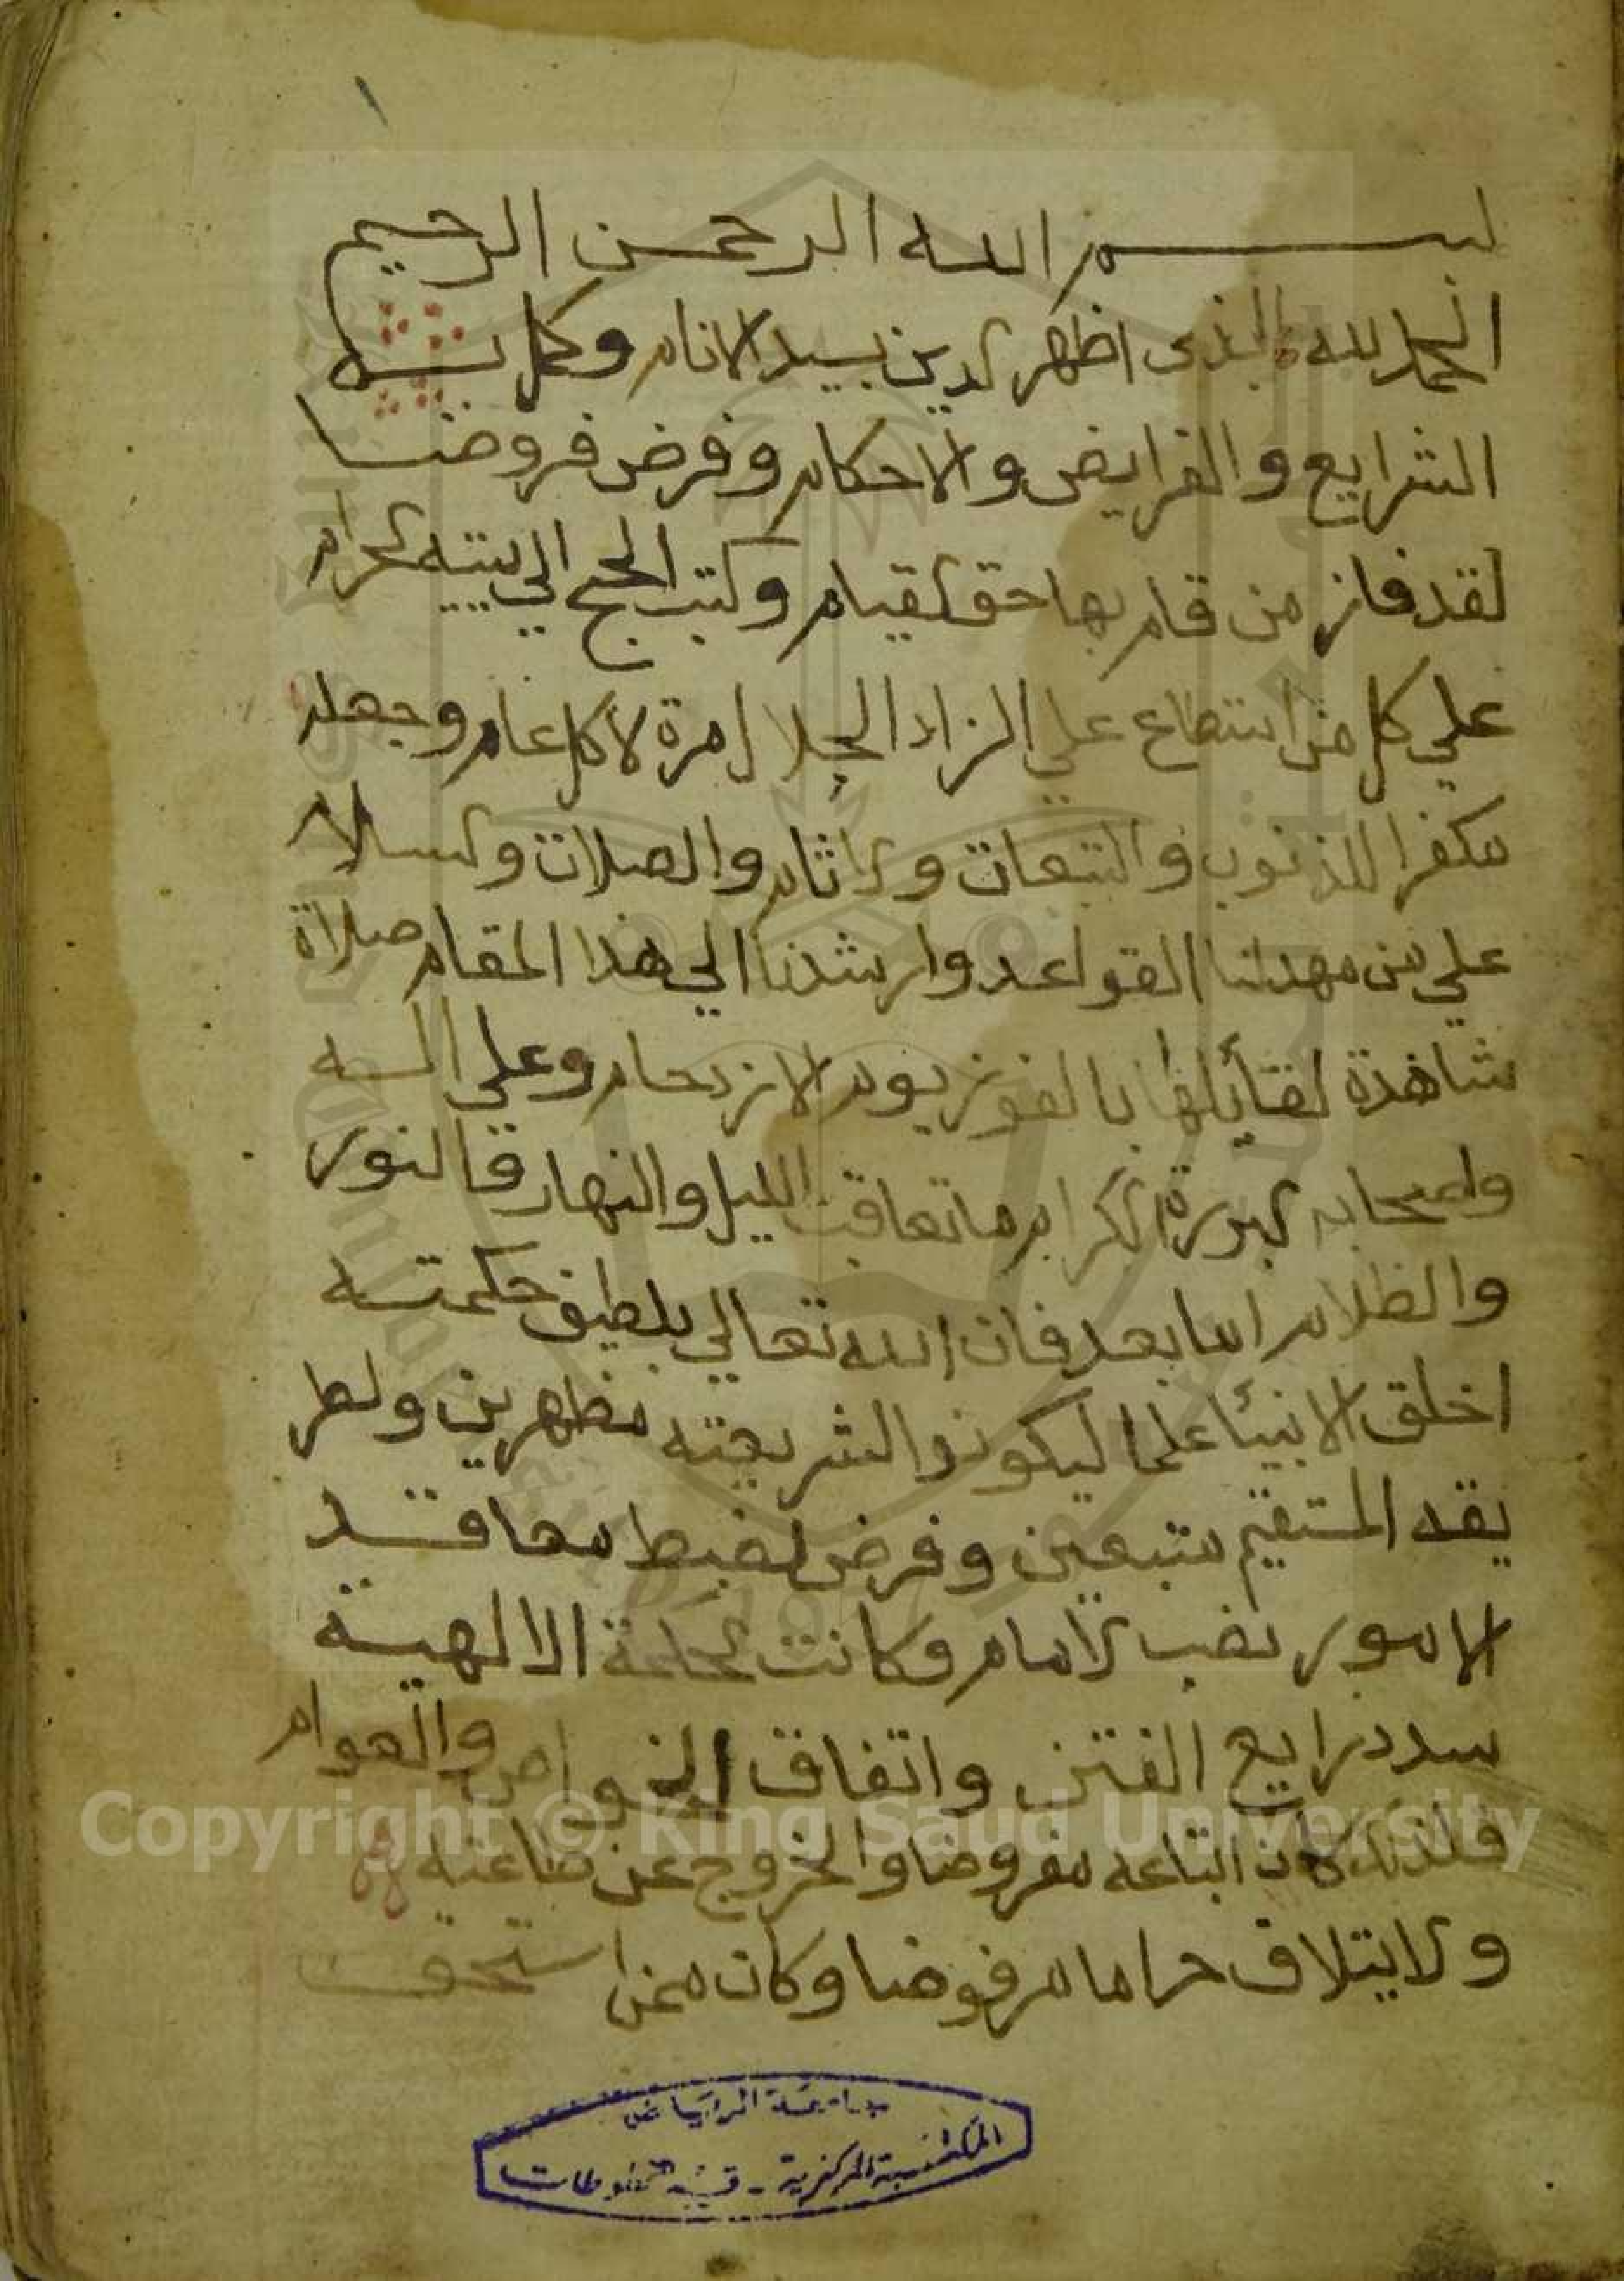 بسم الله الرحمن الرحيم
الحمد لله الذى اظهر الدين بسيد الانام وكمل به
الشرايع والفرايض والاحكام وفرض فروضا
لقد فاز من قام بها حق القيام وكتب الحج الي بيته الحرام
علي كل من استطاع علي الزاد الحلال مرة لا كل عام وجعله
مكفرا للذنوب والتبعات والاثام والصلات والسلام
علي من مهد لنا القواعد وارشدنا الي هذا المقام صلاة
شاهدة لقائلها بالفوز يوم الازدحام وعلي اله
واصحابه البررة الكرام ما تعاقب الليل والنهار والنور
والظلام اما بعد فان الله تعالي بلطيف حكمته
اخلق الانبيئا علما ليكونوا لشريعته مظهرين ولطر
يقه المستقيم متبعين وفرض لضبط معاقد
الامور نصب الامام وكانت الحكمة الالهية
سد ذرايع الفتن واتفاق الخواص والعوام
فلذلك كان اتباعه مفروضا والخروج عن طاعته
والايتلاف حراما مرفوضا وكان ممن استحق
جامعة الرياض
المكتبة المركزية - قسم المخطوطات
Copyright © King Saud University